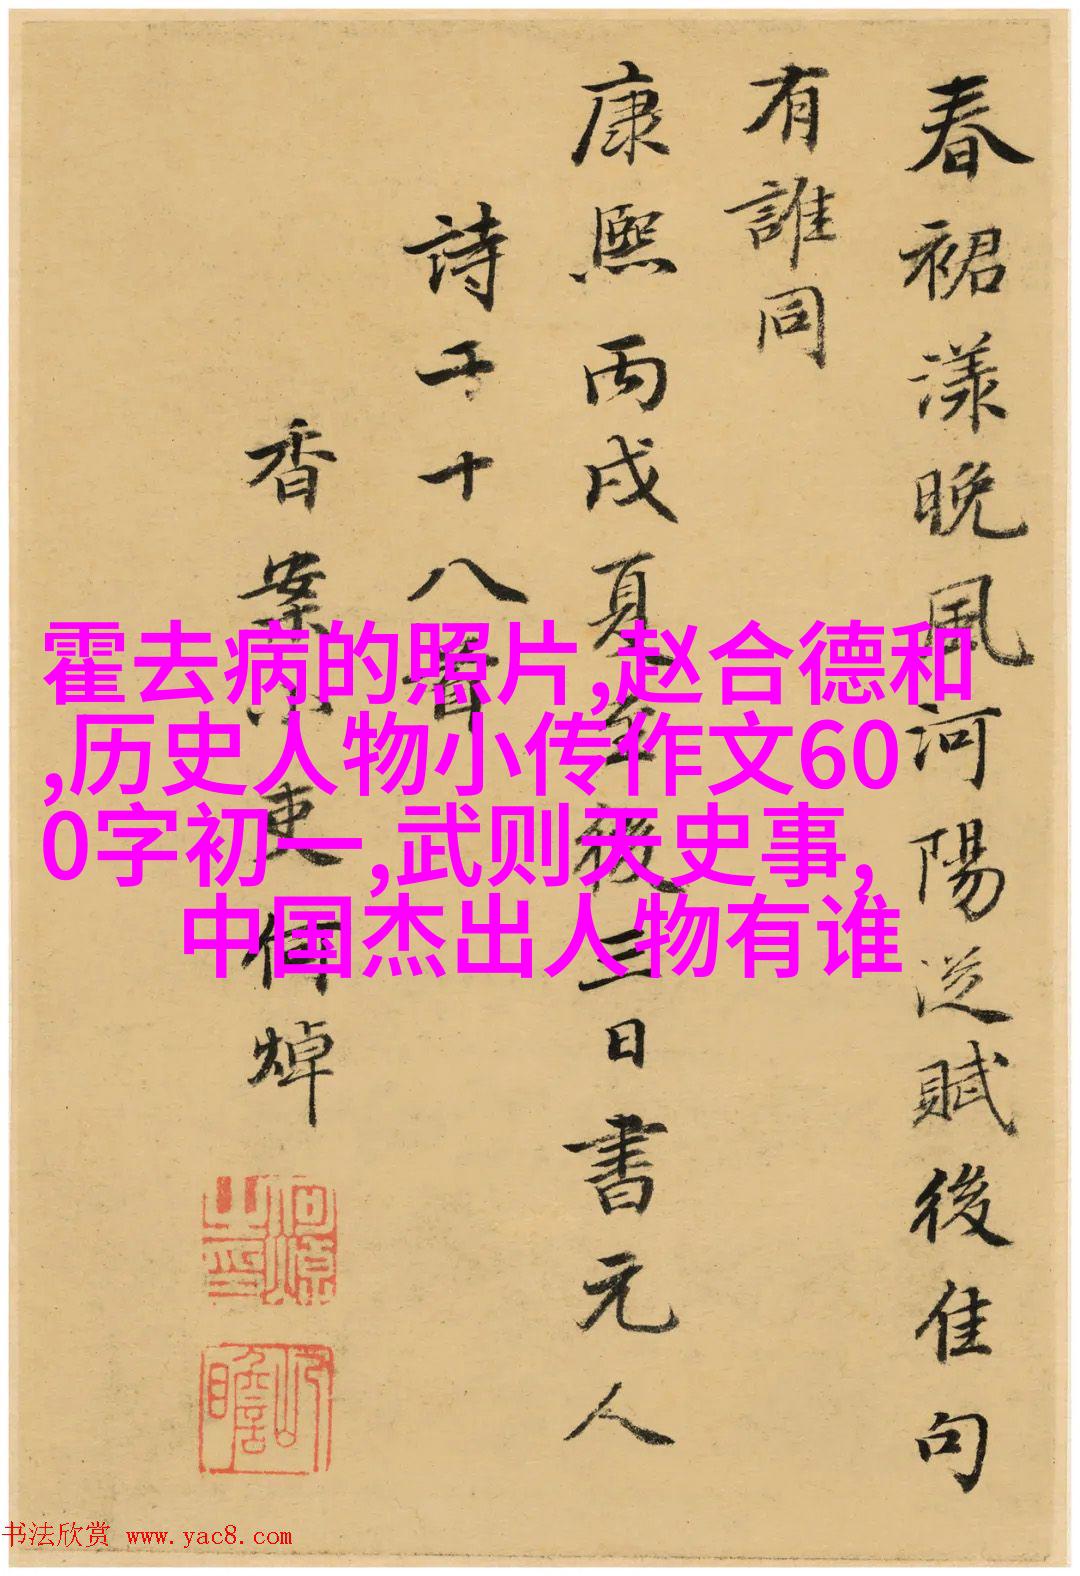 春裙漾晚風河陽從賦後佳句
有誰同
康熙丙戌夏至後三日書元人
詩十八首
香案小吏何焯
何焯之印
屺瞻
霍去病的照片,赵合德和
,历史人物小传作文60
0字初一,武则天史事,
中国杰出人物有谁
书法欣赏 www.yac8.com